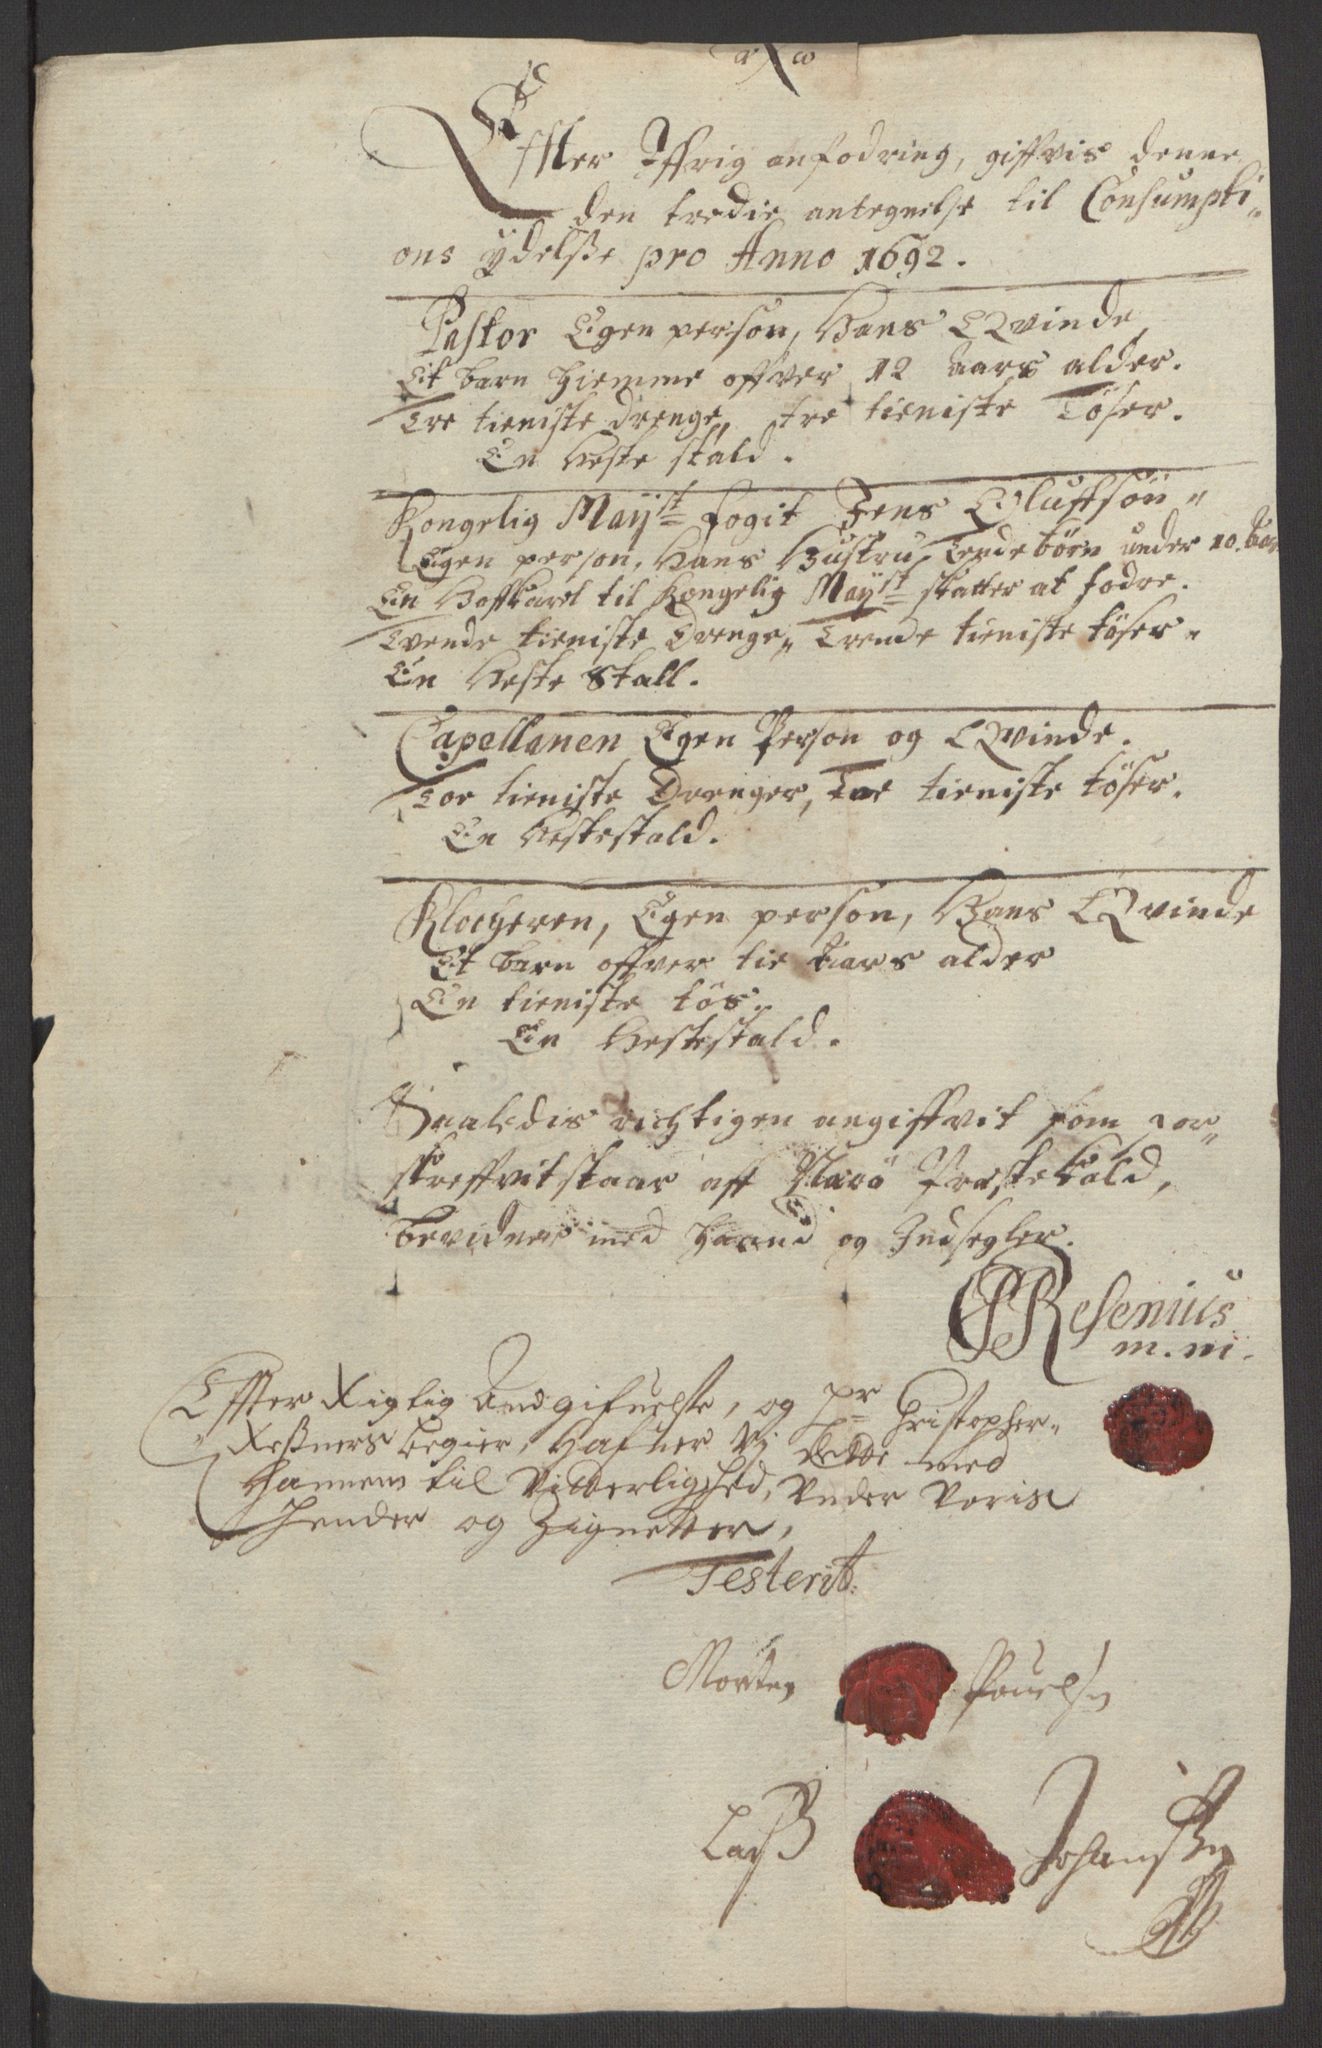 α χ ω
Effter Iffrig anfodring, giffvis denne
den tredie antegnelse til Consumpti-
ons ydelsse pro Anno 1692.
Pastor Egen person, Hans Qvinde,
Et barn hiemme offver 12 aars alder.
Tre tieniste drenge, tre tieniste Töser.
En Heste stald.
Kongelig Mayst Fogit Jens Oluffsön
Egen person, Hans Hustru, börn under 10. aar
En Hoffkarl til Kongelig Mayst skatter at fodre.
Tvende tieniste Drenge, Tvende tieniste töser
En Heste Stall.
Capellanen Egen Person og Qvinde.
Toe tieniste Drenger, Toe tieniste töser.
En Hestestald.
Klocheren, Egen person, Hans Qvinde
Et barn offver tie aars alder
En tieniste tös.
En Hestestald.
Saaledis richtigen angiffvit som for-
skreffvit staar aff Narö Præstekald,
bevidner med Haand og Indsegler.
Resenius
m. m.
Effter Rigtig Andgifuelse, og hr Christopher
Resners begier, Hafuer Vj dette med
Hannem til Vitterlighed, Under Voris
Hender og Zignetter,
Testerit:
Morten Pouelsn
Larss Johanssn